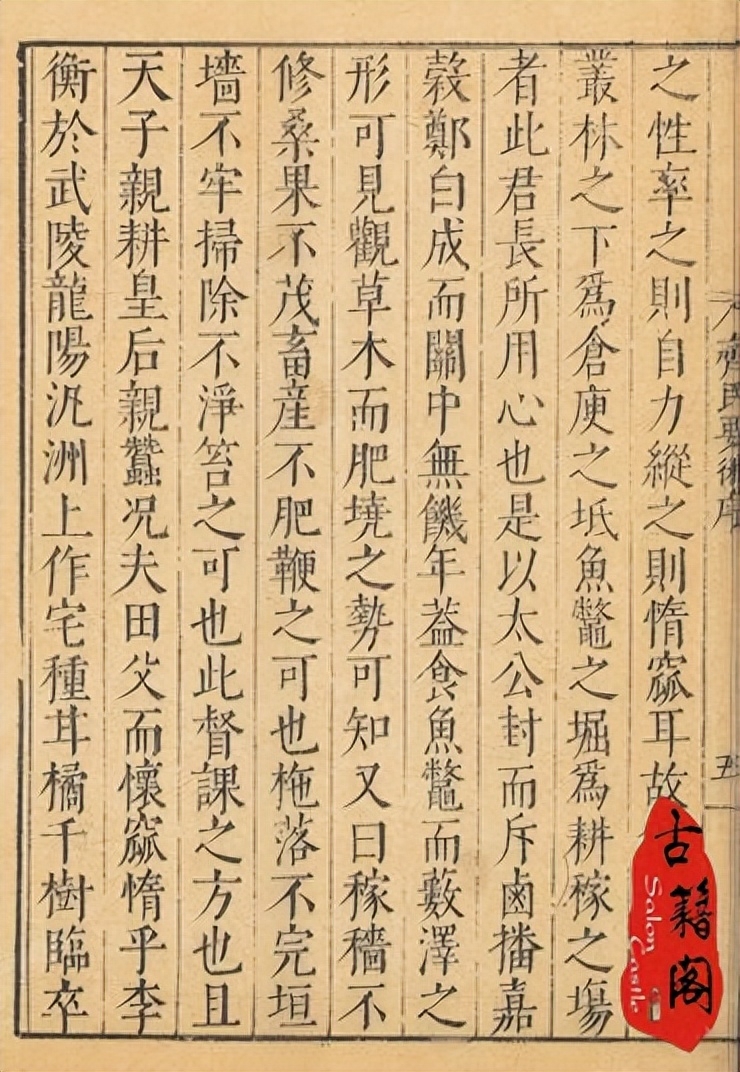 齊民要術序
五
之性率之則自力縱之則惰窳耳故
叢林之下爲倉庾之坻魚鼈之堀爲耕稼之塲
者此君長所用心也是以太公封而斥鹵播嘉
穀鄭白成而關中無饑年蓋食魚鼈而藪澤之
形可見觀草木而肥墝之勢可知又曰稼穡不
修桑果不茂畜産不肥鞭之可也柂落不完垣
墻不牢掃除不淨笞之可也此督課之方也且
天子親耕皇后親蠶况夫田父而懷窳惰乎李
衡於武陵龍陽汎洲上作宅種甘橘千樹臨卒
古籍阁
Salon Castle